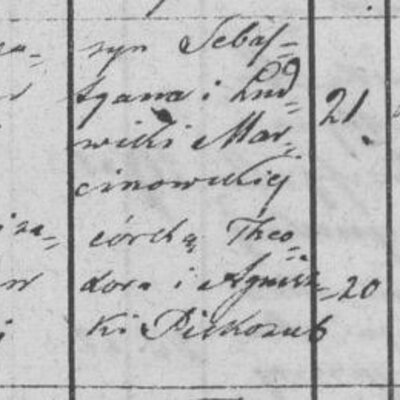 syn Sebas=
tyana i Lud=
wiki Mar=
cinowskiej 21
córką Theo=
dora i Agnisz=
ki Piekozub 20